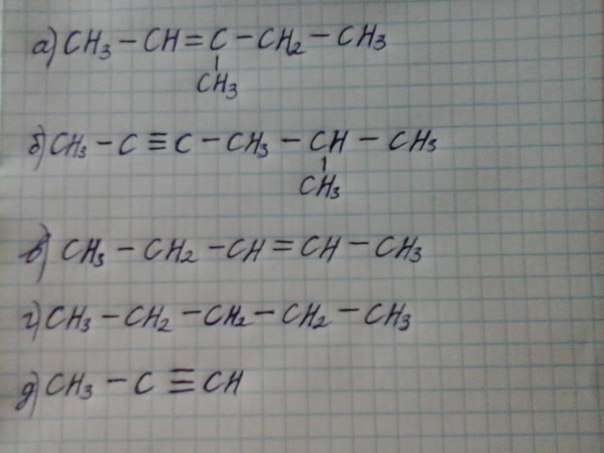 а) CH3 – CH = C – CH2 – CH3
CH3
б) CH3 – C ≡ C – CH3 – CH – CH3
CH3
в) CH3 – CH2 – CH = CH – CH3
г) CH3 – CH2 – CH2 – CH2 – CH3
д) CH3 – C ≡ CH